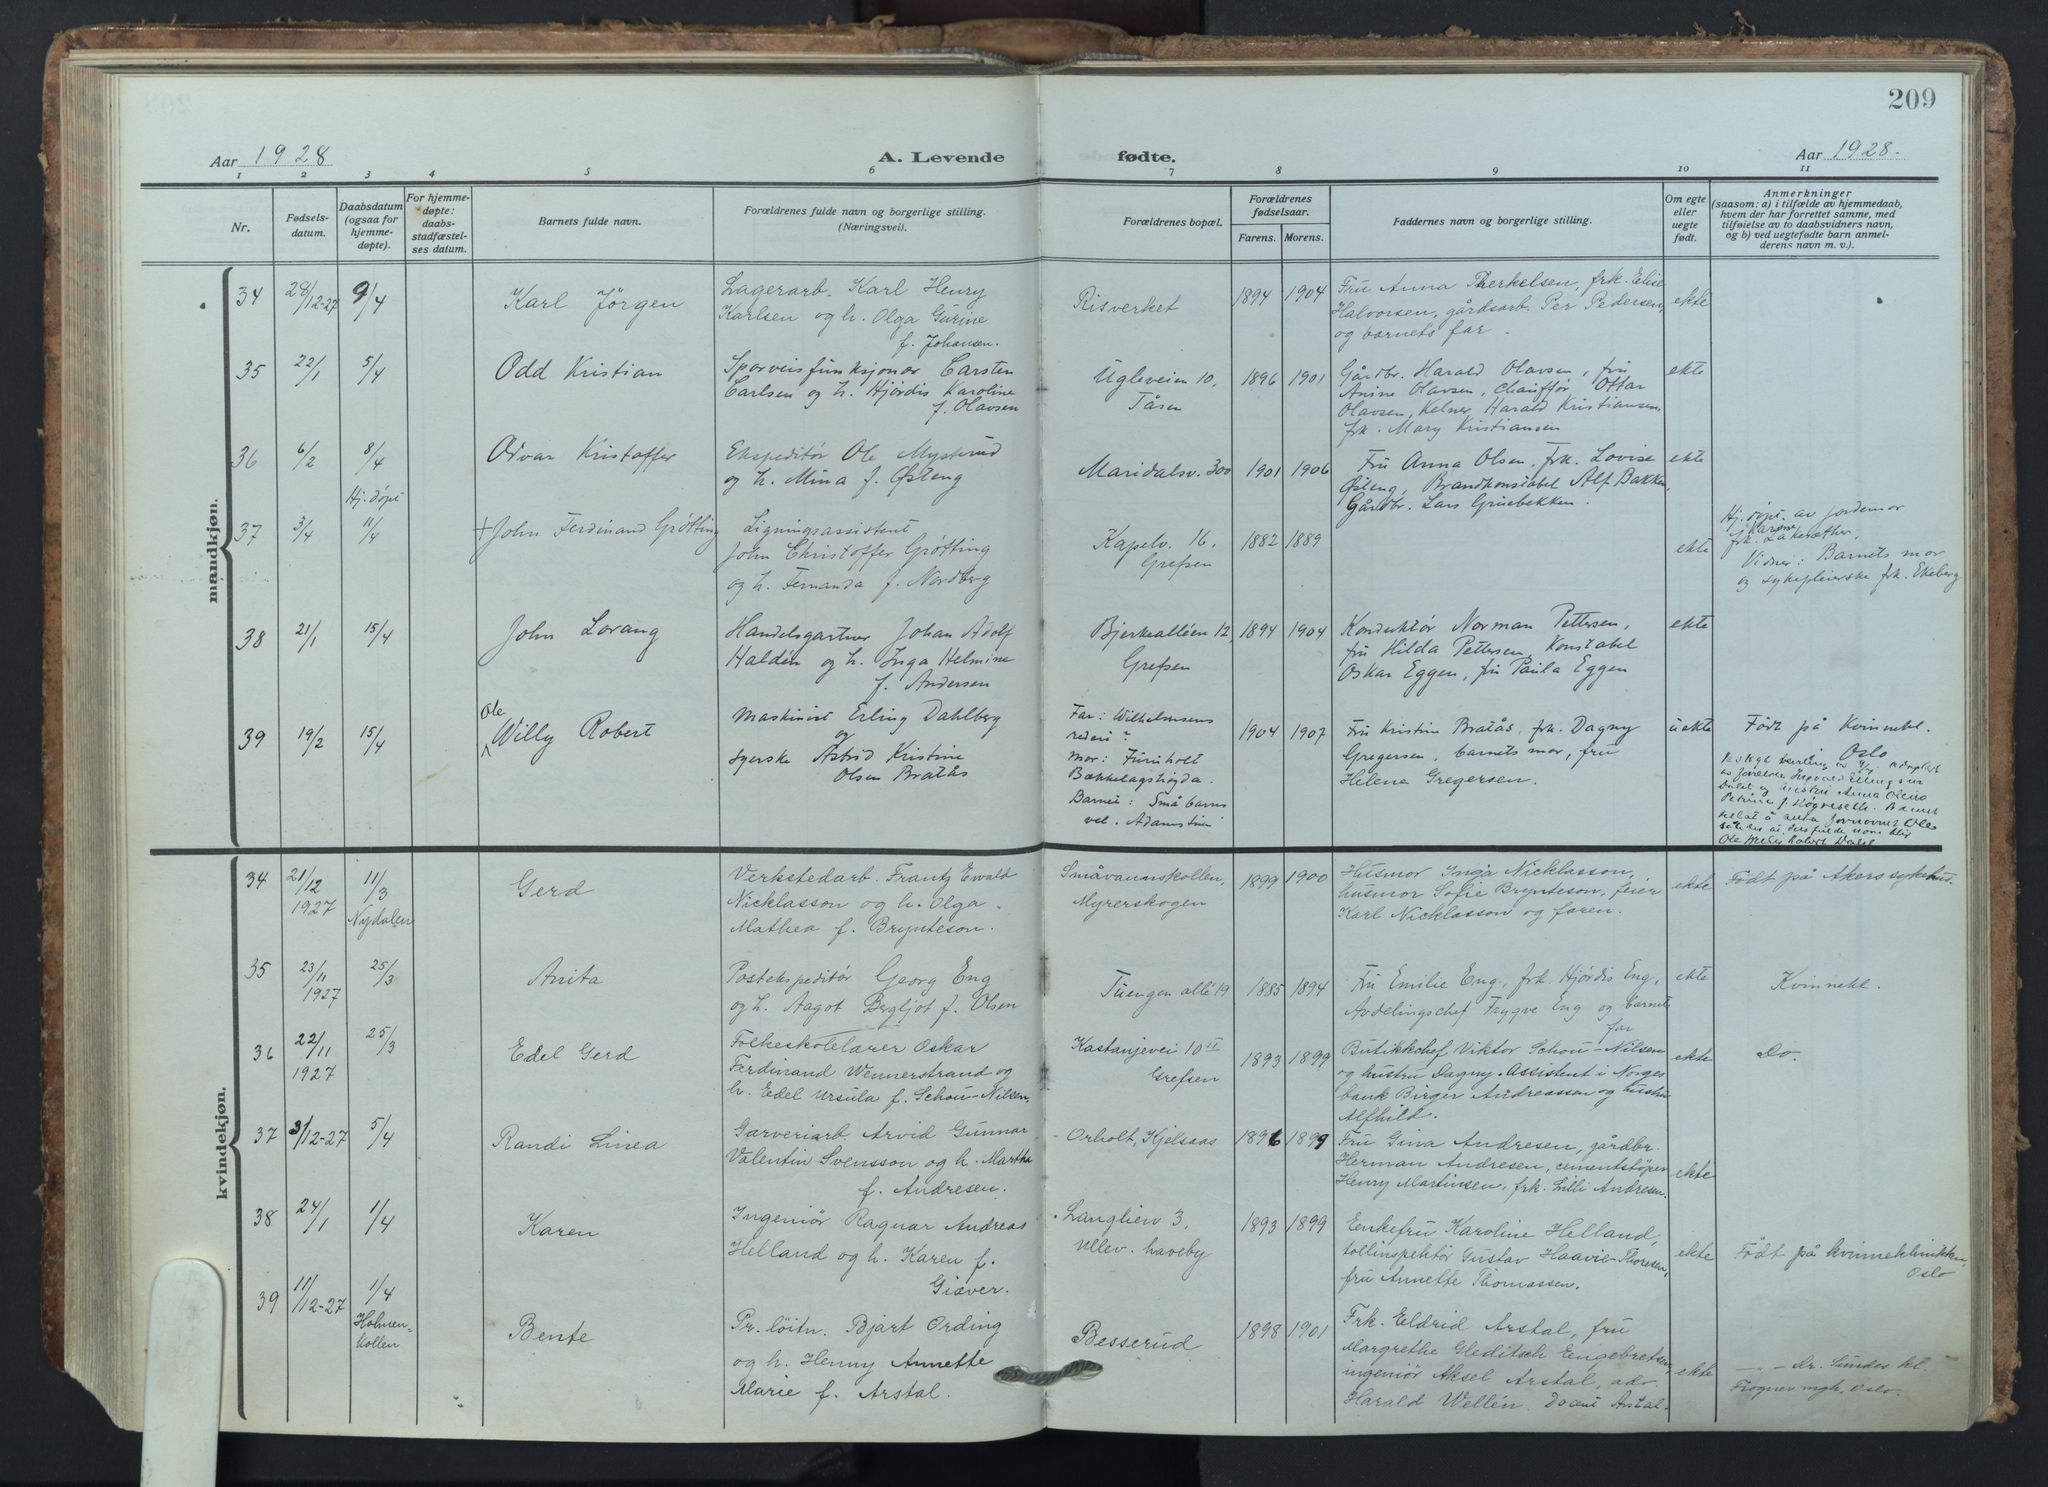 209
Aar 1928
A. Levende
fødte.
Aar 1928.
1 2 3 4 5 6 7 8 9 10 11
Nr.
Fødsels-
datum.
Daabsdatum
(ogsaa for
hjemme-
døpte).
For hjemme-
døpte:
daabs-
stadfæstel-
ses datum.
Barnets fulde navn.
Forældrenes fulde navn og borgerlige stilling.
(Næringsvei).
Forældrenes bopæl.
Forældrenes
fødselsaar.
Farens. Morens.
Faddernes navn og borgerlige stilling.
Om egte
eller
uegte
født.
Anmerkninger
(saasom: a) i tilfælde av hjemmedaab,
hvem der har forrettet samme, med
tilføielse av to daabsvidners navn,
og b) ved uegtefødte barn anmel-
derens navn m. v.).
mandkjøn.
34
28/12-27
9/4
Karl Jörgen
Lagerarb. Karl Henry
Karlsen og h. Olga Gurine
f. Johansen.
Risverket
1894 1904
Fru Anna Therkelsen, frk. Elise
Halvorsen, gårdsarb. Per Pedersen,
og barnets far.
ekte
35
22/1
5/4
Odd Kristian
Sporveisfunksjonær Carsten
Carlsen og h. Hjördis Karoline
f. Olavsen
Ugleveien 10,
Tåsen
1896 1901
Gårdbr. Harald Olavsen, fru
Anine Olavsen, chauffør Ottar
Olavsen, Kelner Harald Kristiansen,
frk. Mary Kristiansen
ekte
36
6/2
8/4
Odvar Kristoffer
Ekspeditör Ole Mysterud
og h. Mina f. Østeng
Maridalsv. 300
1901 1906
Fru Anna Olsen, frk. Lovise
Østeng, Brandkonstabel Alf Bakken,
Gårdbr. Lars Gruebekken.
ekte
37
3/4
Hj. döpt
11/4
+ John Ferdinand Grötting
Ligningsassistent
John Christoffer Grötting
og h. Fernanda f. Nordberg
Kapelv. 16,
Grefsen
1882 1889
ekte
Hj. döpt. av jordemor
frk. Karen
Vidner: Barnets mor
og sykepleierske frk. Ekeberg
38
21/1
15/4
John Lorang
Handelsgartner Johan Adolf
Haldén og h. Inga Helmine
f. Andersen
Bjerkealléen 12
Grefsen
1894 1904
Konduktör Norman Pettersen,
fru Hilda Pettersen, Konstabel
Oskar Eggen, fru Paula Eggen
ekte
39
19/2
15/4
Ole
Willy Robert
Maskinist Erling Dahlberg
og
syerske Astrid Kristine
Olsen Bratås
Far: Wilhelmsens
rederi?
Mor: Furuholt
Bekkelagshögda.
Barnet: Små barns
vel. Adamstuen
1904 1907
Fru Kristine Bratås, frk. Dagny
Gregersen, barnets mor, fru
Helene Gregersen.
uekte
Födt på Kvinnekl.
Oslo
Ole Willy Robert Dahl
kvindekjøn.
34
21/12
1927
11/3
Nydalen
Gerd
Verkstedarb. Frantz Ewald
Nicklasson og h. Olga
Mathea f. Brynteson.
Småvannskollen,
Myrerskogen
1899 1900
Husmor Inga Nicklasson,
husmor Sofie Brynteson, feier
Karl Nicklasson og faren.
ekte
Födt på Akers sykehus.
35
23/11
1927
25/3
Anita
Postekspeditör Georg Eng
og h. Aagot Bergljot f. Olsen
Tuengen allé 19
1885 1894
Fru Emilie Eng, frk. Hjördis Eng,
Avdelingschef Trygve Eng og barnets
far
ekte
Kvinnekl.
36
22/11
1927
25/3
Edel Gerd
Folkeskolelærer Oskar
Ferdinand Wennerstrand og
h. Edel Ursula f. Schou-Nilsen.
Kastanjevei 10 II
Grefsen
1893 1899
Butikkchef Viktor Schou-Nilsen
og hustru Dagny. Assistent i Norges
bank Birger Andreassen og hustru
Alfhild.
ekte
Do.
37
3/12-27
5/4
Randi Linea
Garveriarb. Arvid Gunnar
Valentin Svensson og h. Martha
f. Andresen.
Orholt, Kjelsaas
1896 1899
Fru Gina Andresen, gårdbr.
Herman Andresen, cementstöper
Henry Martinsen, frk. Lilli Andresen.
ekte
38
24/1
1/4
Karen
Ingeniör Ragnar Andreas
Helland og h. Karen f.
Giæver.
Langlien 3,
Ullev. haveby
1893 1899
Enkefru Karoline Helland,
tollinspektör Gustav Haavie-Thoresen,
fru Annette Thomassen.
ekte
Födt på kvinneklinikken,
Oslo
39
11/12-27
1/4
Holmen-
kollen
Bente
Pr. löitn. Bjart Ording
og h. Henny Annette
Marie f. Arstal.
Besserud
1898 1901
Frk. Eldrid Arstal, fru
Margrethe Gleditsch Engebretsen,
ingeniör Aksel Arstal, adv.
Harald Wellén. Docent Arstal.
ekte
—„— Dr. Sundes kl.
Frogner mgh. Oslo.